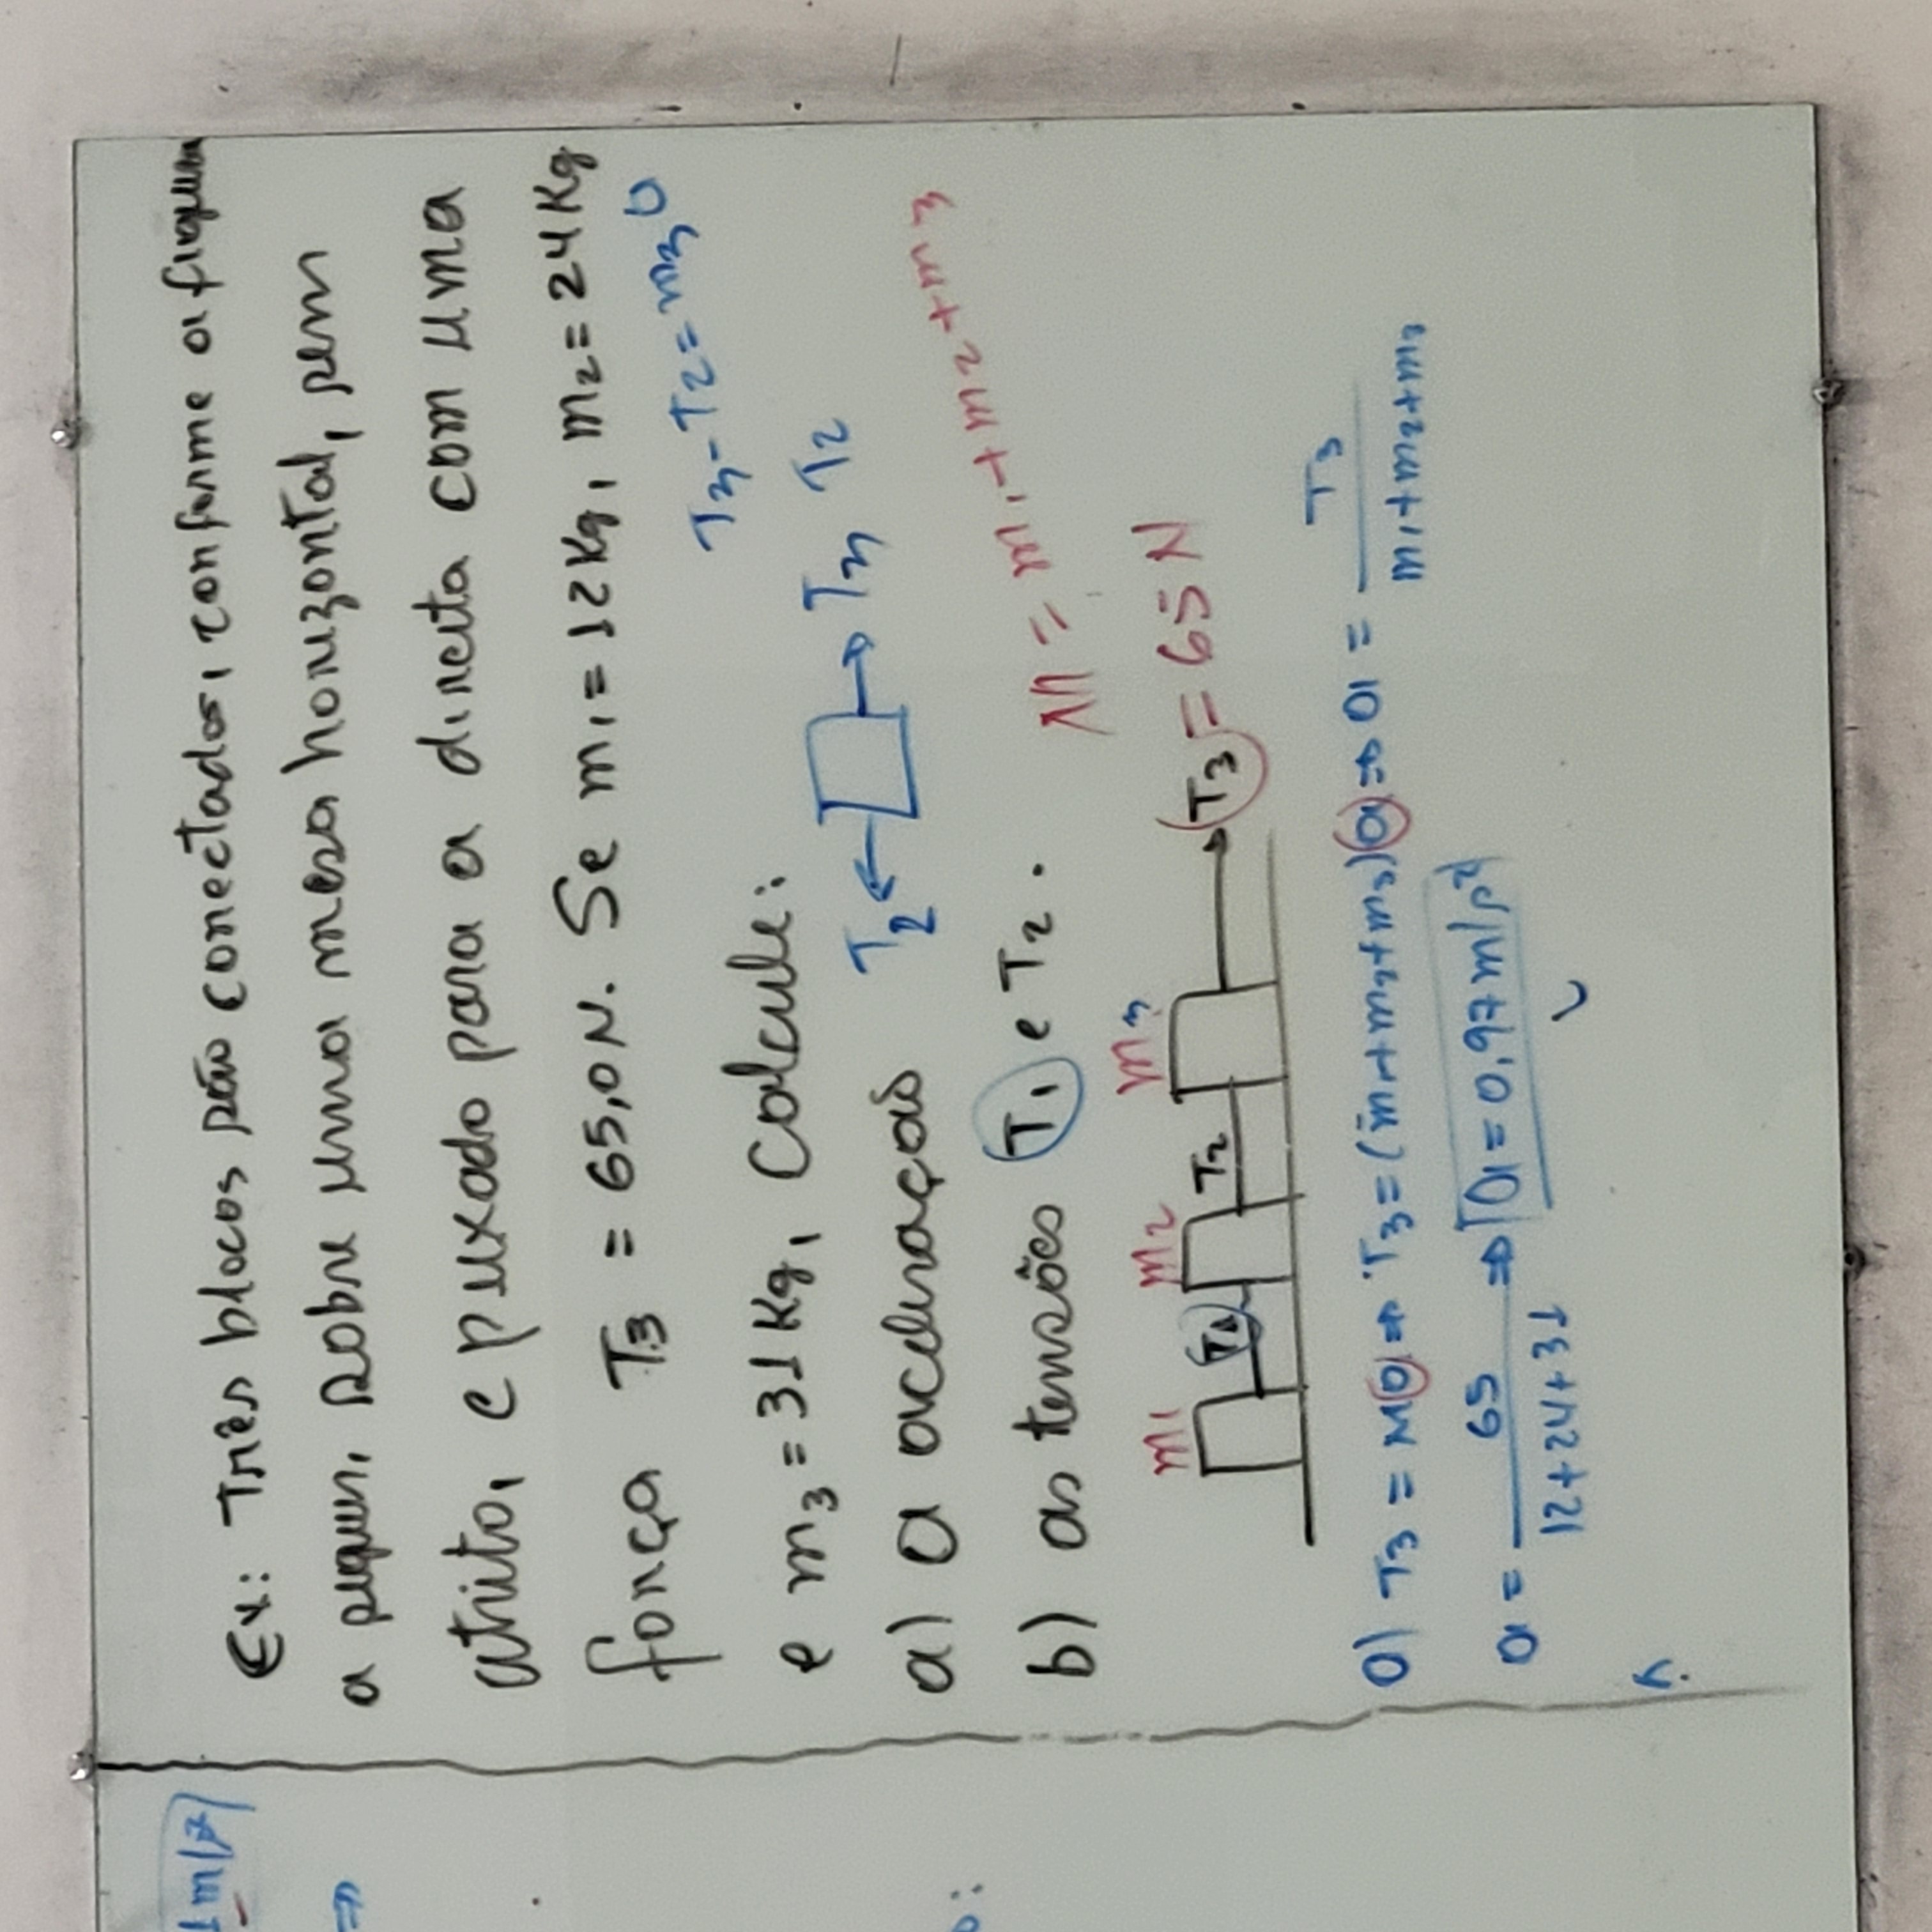 Ex: Três blocos são conectados, conforme a figura
a seguir, sobre uma mesa horizontal, sem
atrito, e puxado para a direita com uma
força T3 = 65,0N. Se m1 = 12Kg, m2 = 24Kg
e m3 = 31Kg, Calcule:
T3 - T2 = m3
a) a aceleração
T2 T3 T2
b) as tensões T1 e T2.
M = m1 + m2 + m3
m1 m2 m3
T1 T2 T3 = 65N
a) T3 = Ma ⇒ T3 = (m1+m2+m3)a ⇒ a = T3
m1+m2+m3
a = 65 ⇒ a = 0,97 m/s²
12+24+31
m/s²
⇒